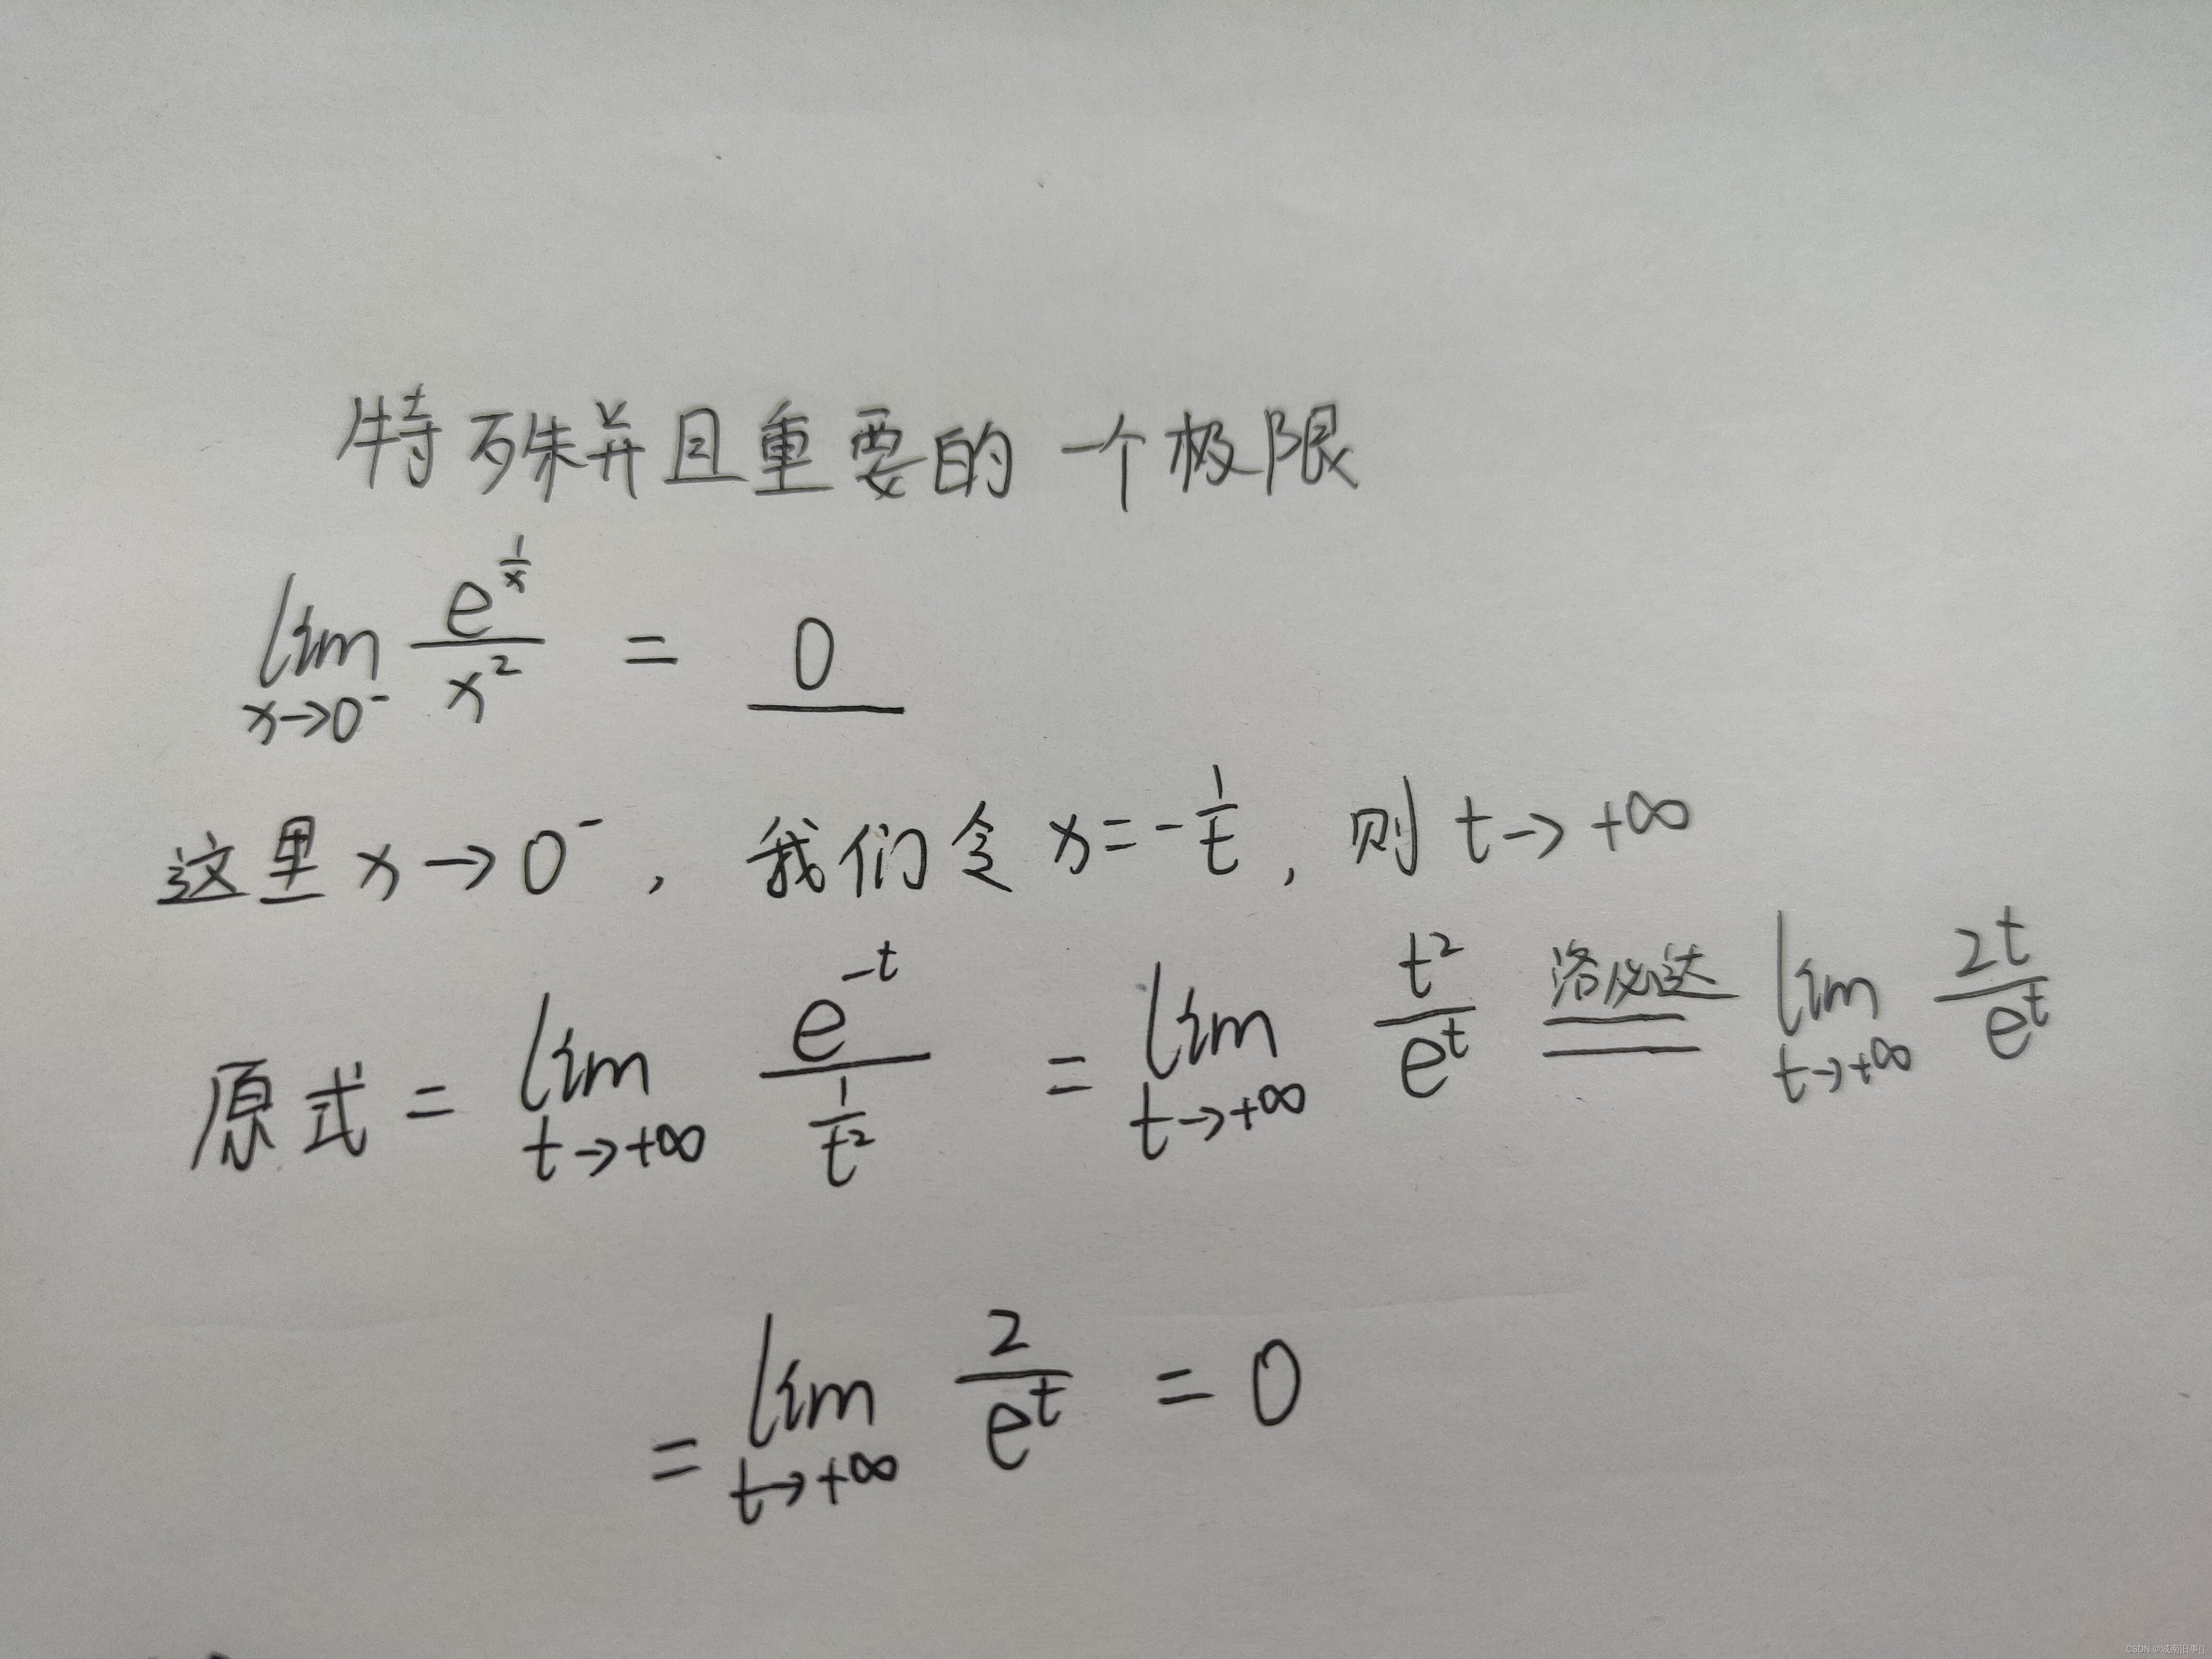 特殊并且重要的一个极限
lim_{x→0⁻} e^{1/x} / x² = 0
这里 x→0⁻, 我们令 x=-1/t, 则 t→+∞
原式 = lim_{t→+∞} e^{-t} / (1/t²) = lim_{t→+∞} t²/e^t 洛必达 = lim_{t→+∞} 2t/e^t
= lim_{t→+∞} 2/e^t = 0